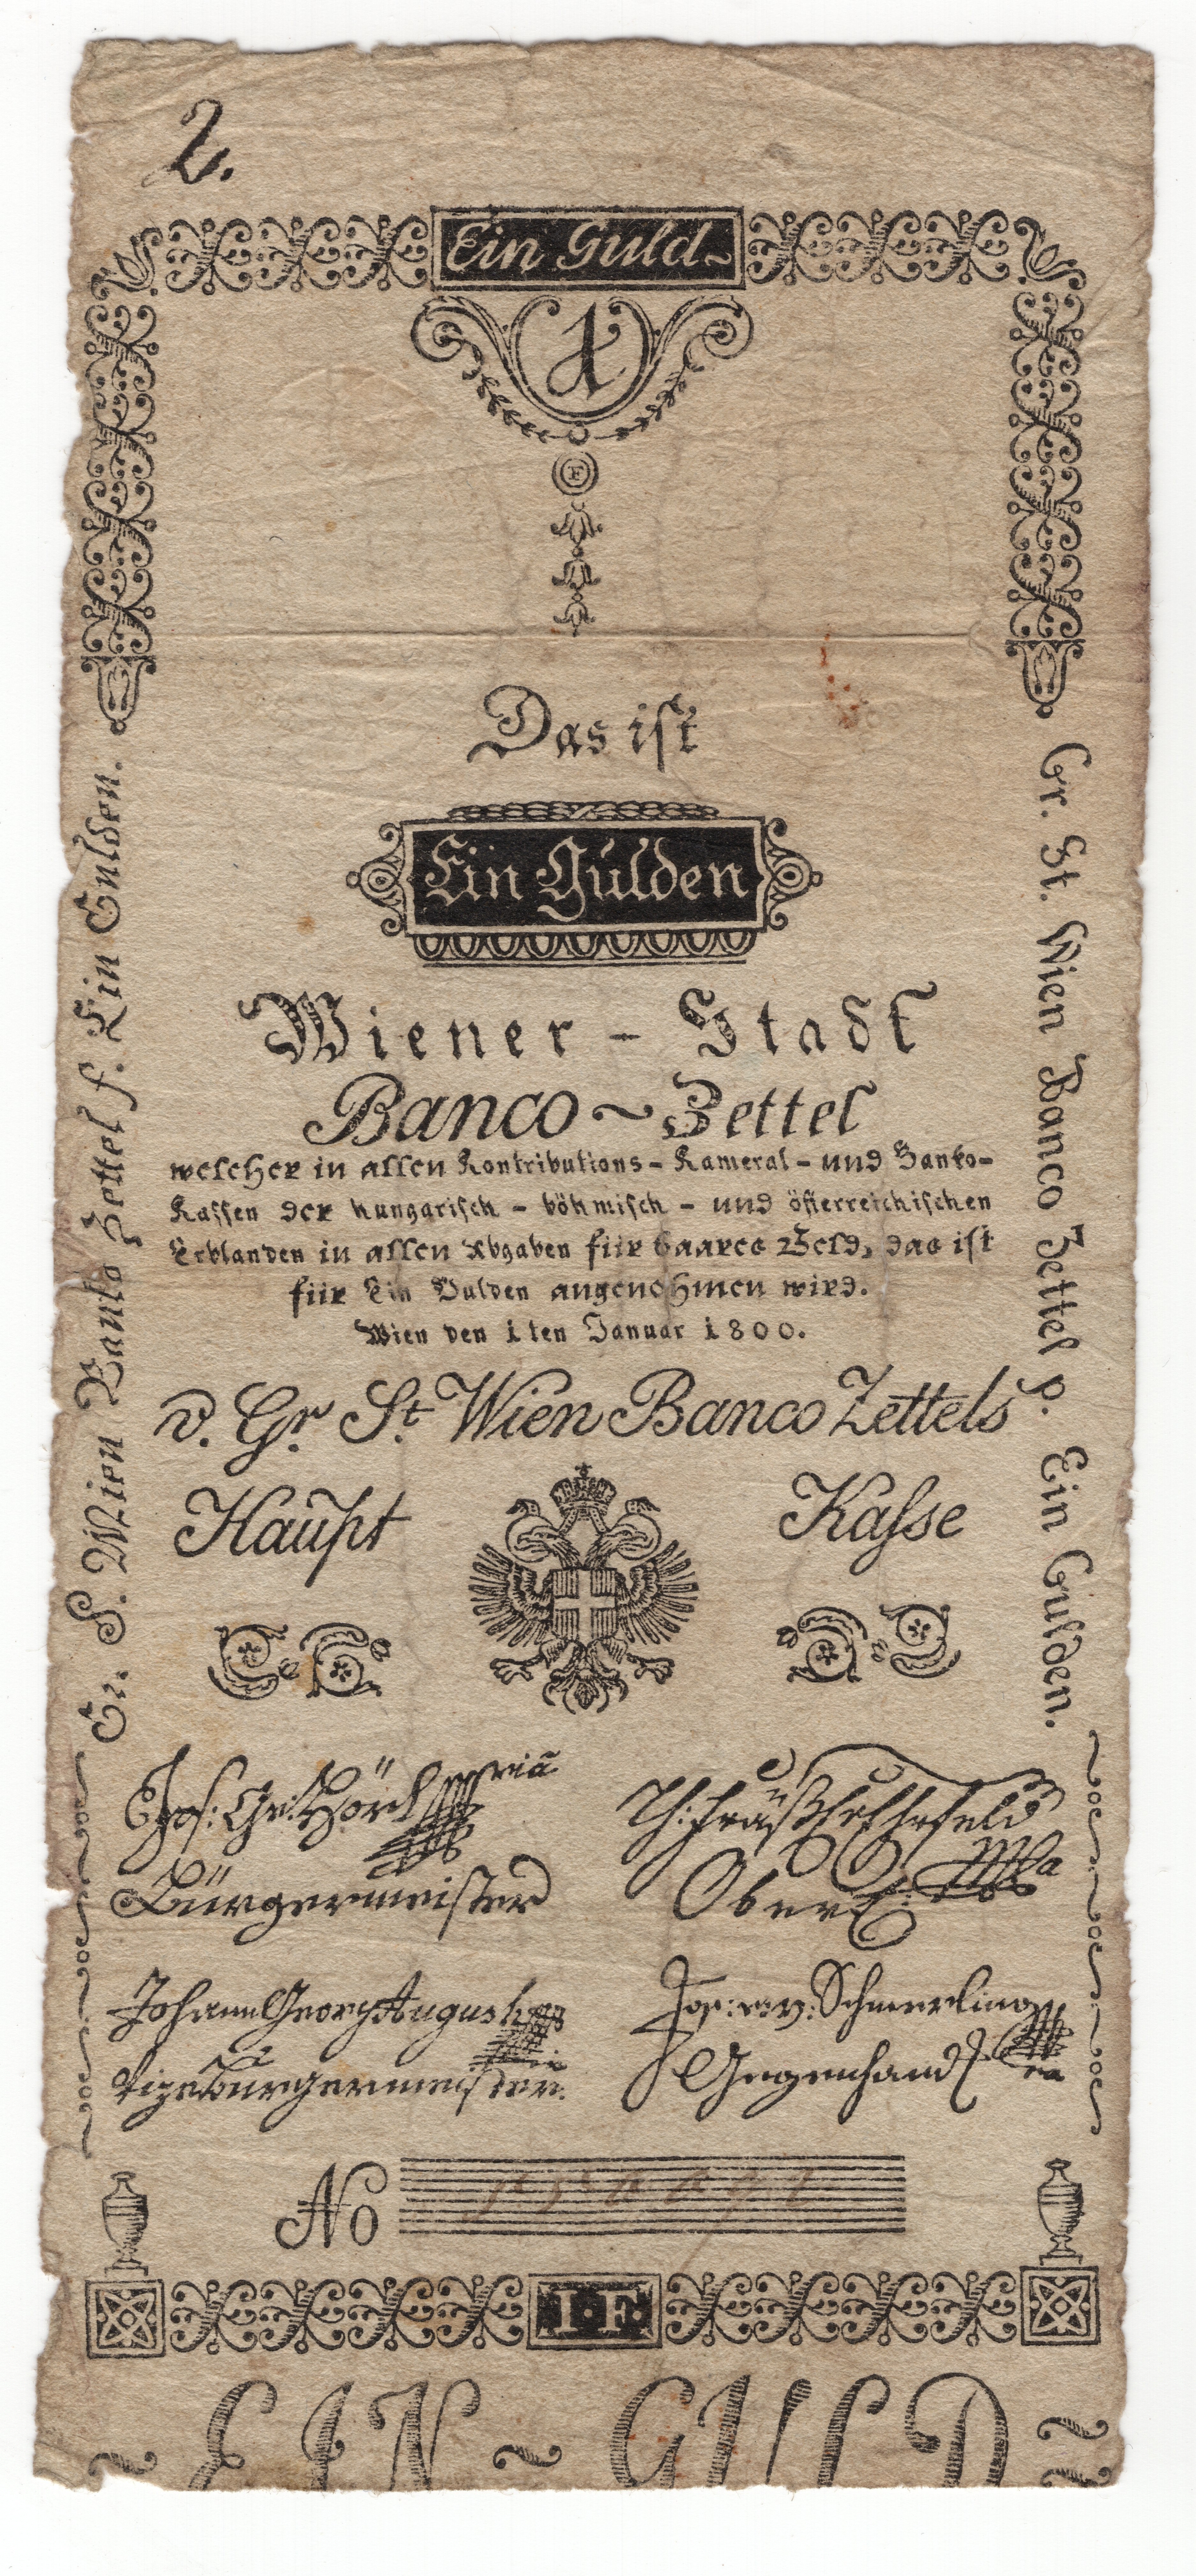 2.
Ein Guld~
1
F
Das ist
Ein Gulden
Wiener - Stadt
Banco ~ Zettel
welcher in allen Kontributions - Kameral - und Banko-
Kassen der hungarisch - böhmisch - und österreichischen
Erblanden in allen Abgaben für baares Geld, das ist
für Ein Gulden angenohmen wird.
Wien den 1ten Januar 1800.
Gr. S. Wien Banko Zettel f. Ein Gulden.
Gr. St. Wien Banco Zettel p. Ein Gulden.
v. Gr. St. Wien Banco Zettels
Haupt Kasse
Jos: Ge: Hörl
Bürgermeister
Johann Georg Augusti
Vizebürgermeister.
Jos: v: Schmerling
Gegenhand
No
1·F·
EIN ~ GULD